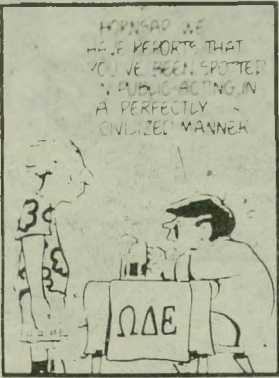 HORNSAP, WE
HAVE REPORTS THAT
YOU'VE BEEN SPOTTED
IN PUBLIC ACTING IN
A PERFECTLY
CIVILIZED MANNER
ΩΔΕ